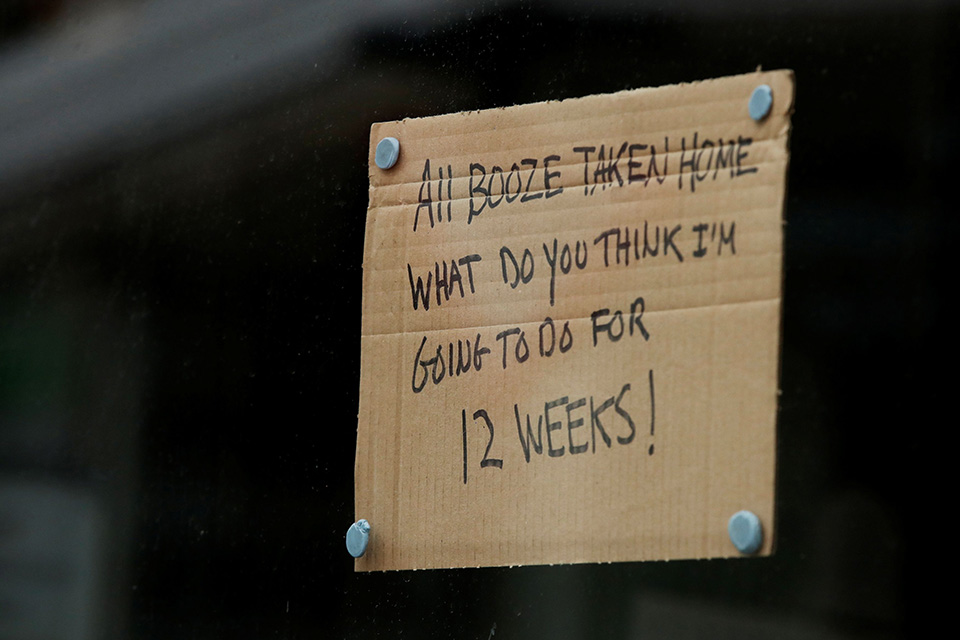 All BOOZE TAKEN HOME
WHAT DO YOU THINK I'M
GOING TO DO FOR
12 WEEKS!